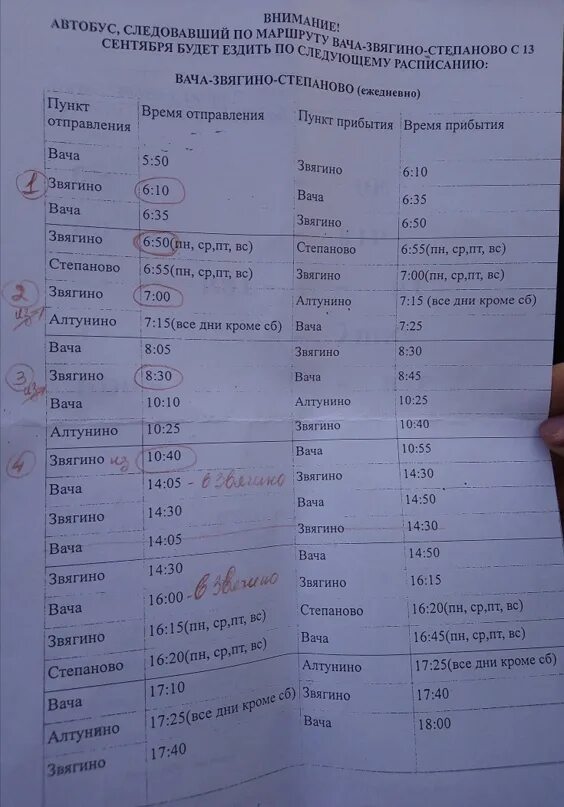 ВНИМАНИЕ!
АВТОБУС, СЛЕДОВАВШИЙ ПО МАРШРУТУ ВАЧА-ЗВЯГИНО-СТЕПАНОВО С 13
СЕНТЯБРЯ БУДЕТ ЕЗДИТЬ ПО СЛЕДУЮЩЕМУ РАСПИСАНИЮ:
ВАЧА-ЗВЯГИНО-СТЕПАНОВО (ежедневно)
Пункт отправления Время отправления Пункт прибытия Время прибытия
Вача 5:50 Звягино 6:10
1 Звягино 6:10 Вача 6:35
Вача 6:35 Звягино 6:50
Звягино 6:50(пн, ср,пт, вс) Степаново 6:55(пн, ср,пт, вс)
Степаново 6:55(пн, ср,пт, вс) Звягино 7:00(пн, ср,пт, вс)
2 Звягино 7:00 Алтунино 7:15 (все дни кроме сб)
Алтунино 7:15(все дни кроме сб) Вача 7:25
Вача 8:05 Звягино 8:30
3 Звягино 8:30 Вача 8:45
Вача 10:10 Алтунино 10:25
Алтунино 10:25 Звягино 10:40
4 Звягино из 10:40 Вача 10:55
Вача 14:05 - в Звягино Звягино 14:30
Звягино 14:30 Вача 14:50
Вача 14:05 Звягино 14:30
Звягино 14:30 Вача 14:50
Вача 16:00 - в Звягино Звягино 16:15
Звягино 16:15(пн, ср,пт, вс) Степаново 16:20(пн, ср,пт, вс)
Степаново 16:20(пн, ср,пт, вс) Вача 16:45(пн, ср,пт, вс)
Вача 17:10 Алтунино 17:25(все дни кроме сб)
Алтунино 17:25(все дни кроме сб) Звягино 17:40
Звягино 17:40 Вача 18:00